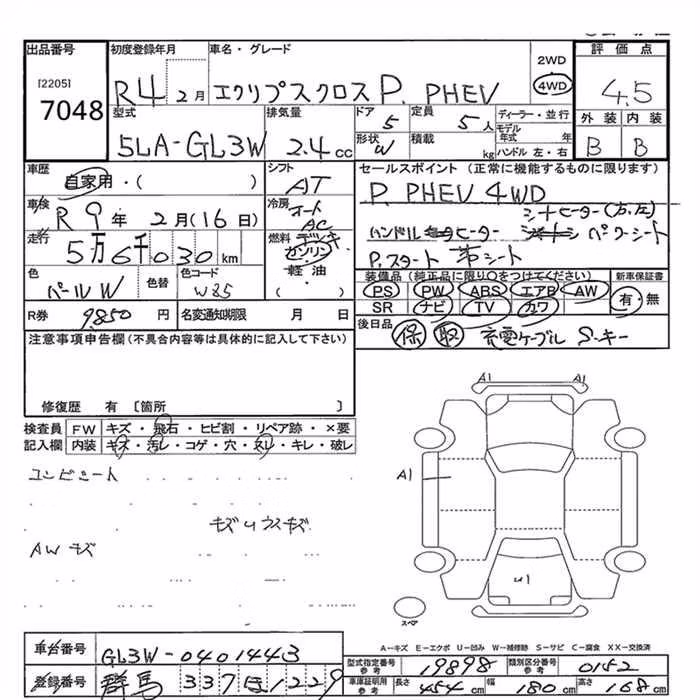 出品番号 初度登録年月 車名・グレード 評価点
[2205] 7048
R4 2月 エクリプスクロス P. PHEV 2WD 4WD 4.5
型式 排気量 ドア 定員 ディーラー・並行 外装 内装
5LA-GL3W 2.4cc 5 5人 モデル年式 年 B B
形状 W 積載 kg ハンドル 左・右
車歴 シフト セールスポイント (正常に機能するものに限ります)
自家用・( ) AT P. PHEV 4WD
車検 冷房 シートヒーター(右,左)
R9年 2月(16日) オート AC ハンドルヒーター パワーシート
走行 燃料 P.スタート 革シート
5万6千030km ガソリン
色 色替 色コード 軽油 装備品 (純正品に限り○をつけてください) 新車保証書
パールW W85 ( ) PS PW ABS エアB AW 有・無
SR ナビ TV カワ
R券 9850円 名変通知期限 月 日 後日品
保 取 充電ケーブル S.キー
注意事項申告欄 (不具合内容等は具体的に記入して下さい)
修復歴 有 〔箇所 〕
検査員 FW キズ・飛石・ヒビ割・リペア跡・×要
記入欄 内装 キズ・汚レ・コゲ・穴・スレ・キレ・破レ
A1 A1
コンビシート
A1
キズ ウスキズ
AW キズ
U1
スペア
A―キズ E―エクボ U―凹み W―補修跡 S―サビ C―腐食 XX―交換済
車台番号 GL3W-0401443
型式指定番号 参考 19898 類別区分番号 参考 0152
登録番号 群馬 337 ほ 1229
車庫証明用 参考 長さ 454cm 幅 180cm 高さ 168cm